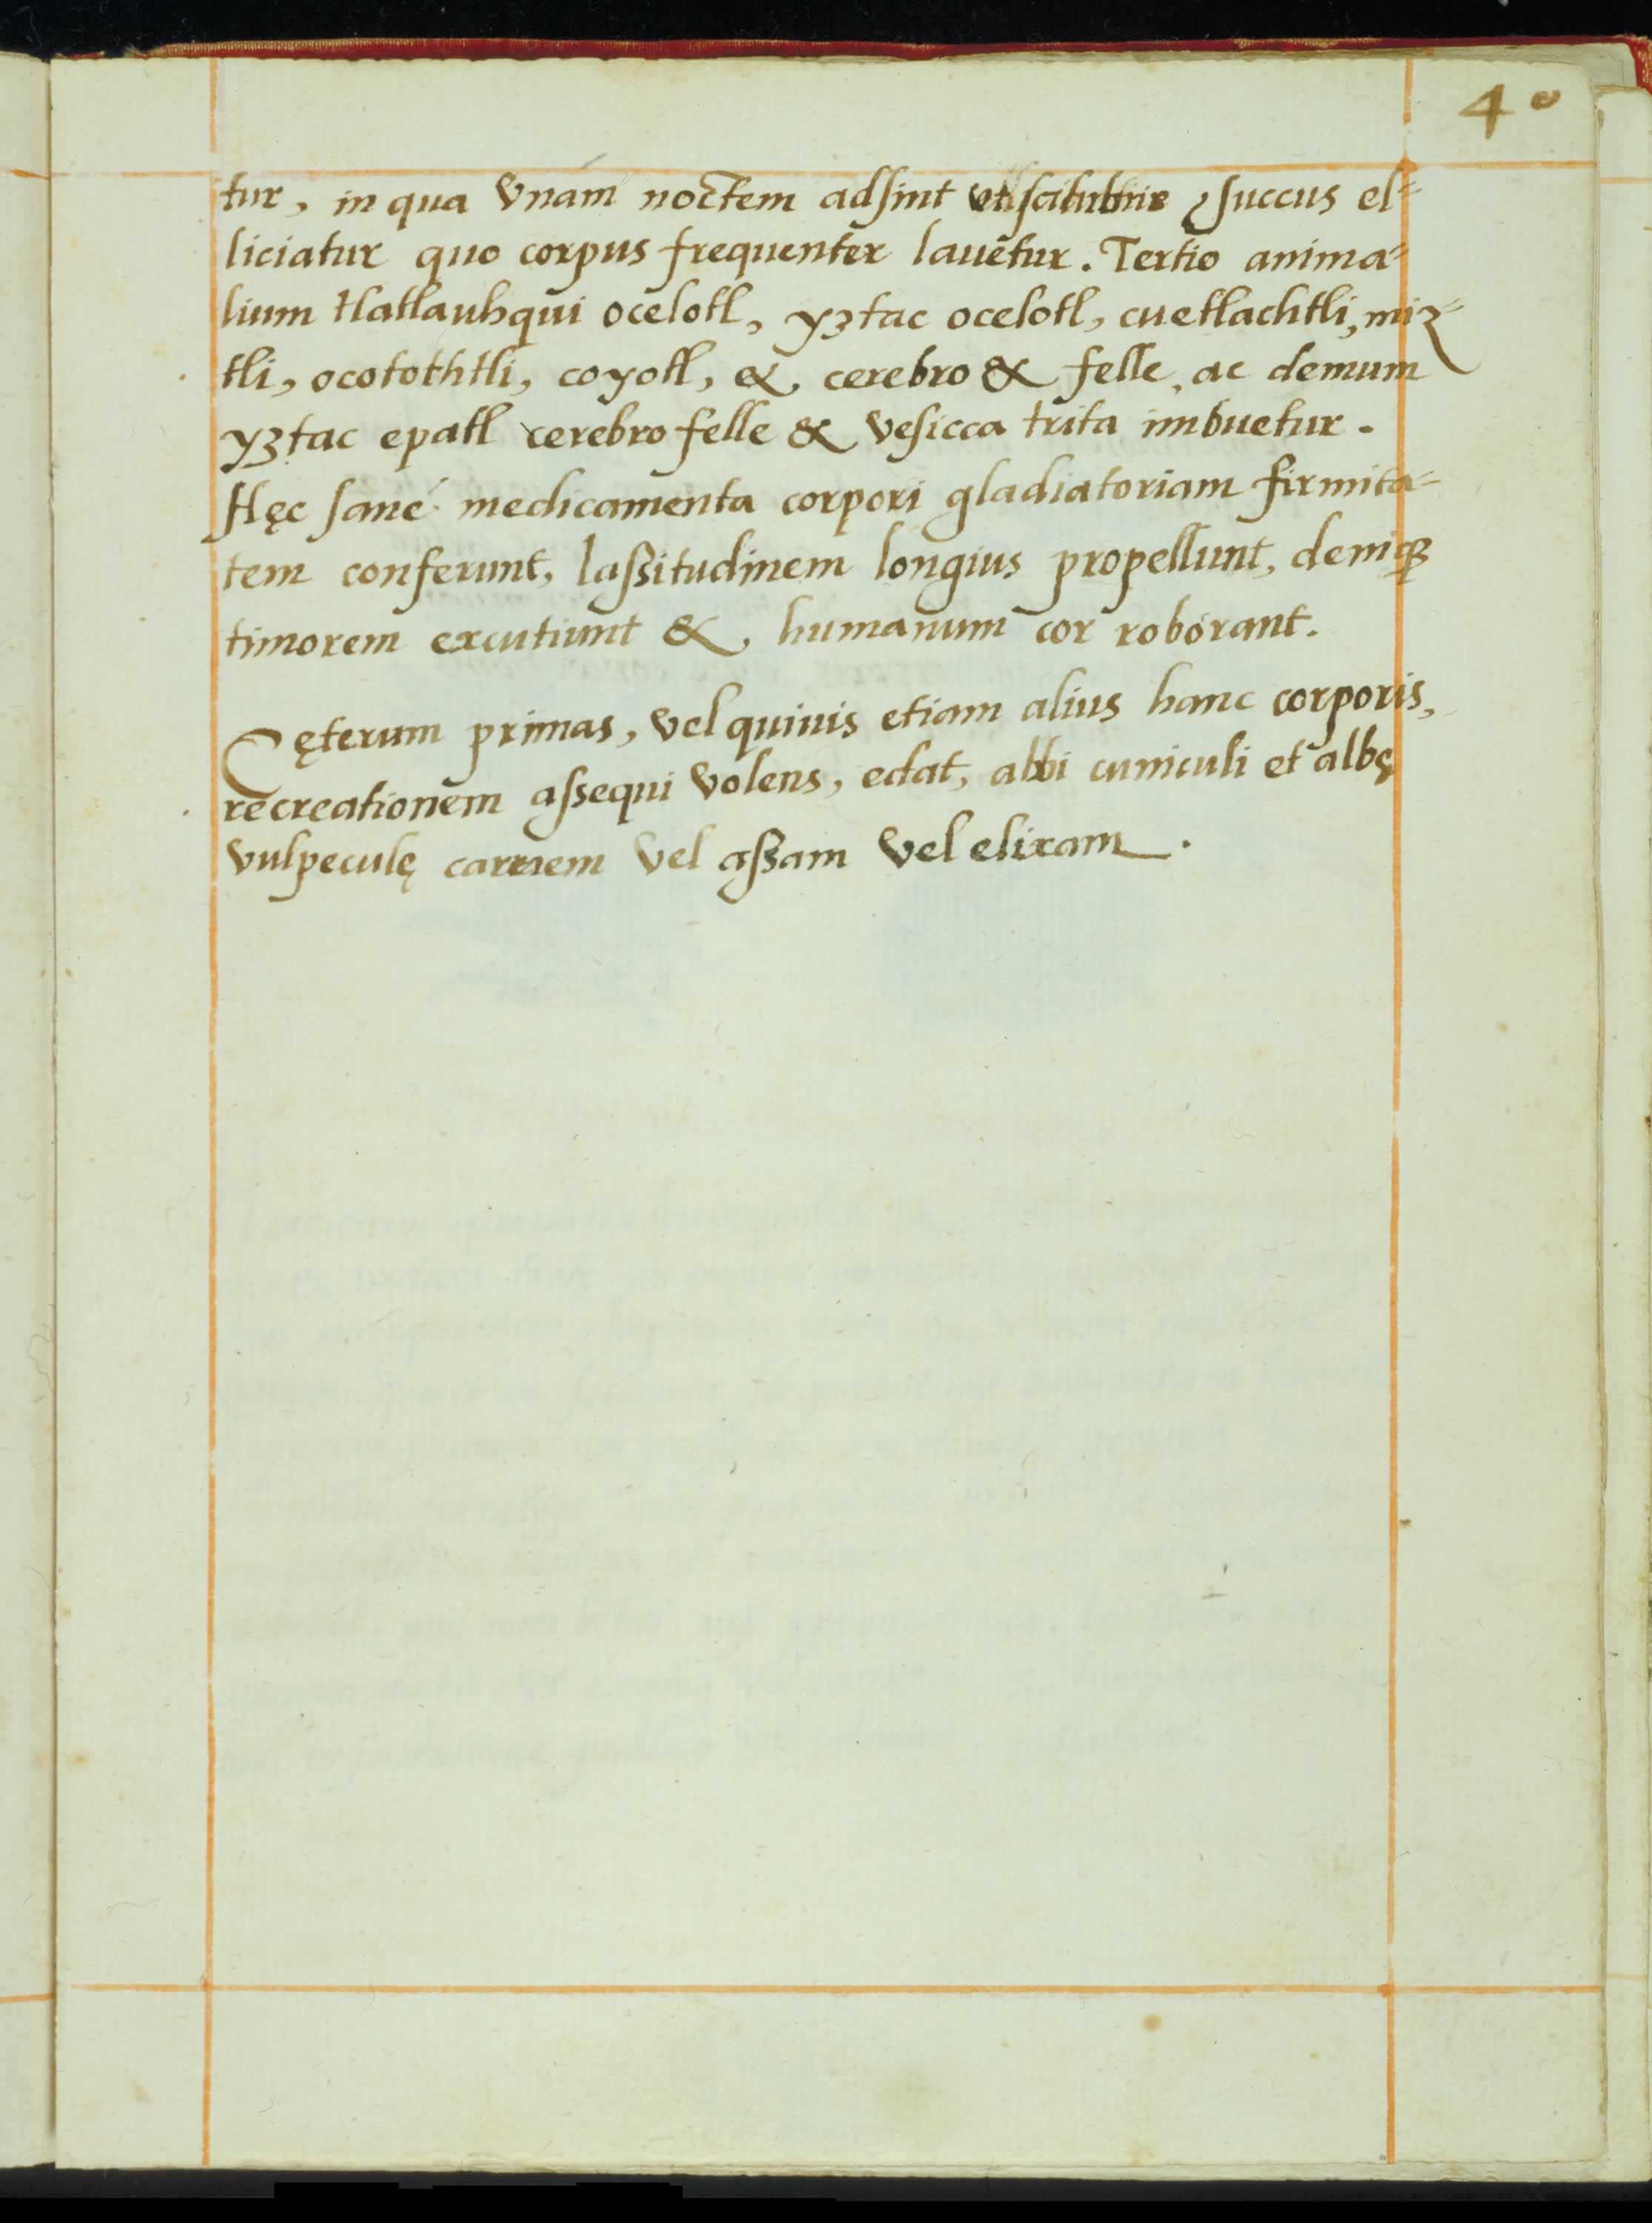 40
tur, in qua vnam noctem adsint succus el-
liciatur quo corpus frequenter lauētur. Tertio anima-
lium tlatlauhqui ocelotl, yztac ocelotl, cuetlachtli, miz-
tli, ocotothtli, coyotl, & cerebro & felle, ac demum
yztac epatl cerebro felle & vesicca trita imbuetur.
Hęc sané medicamenta corpori gladiatoriam firmita-
tem conferunt, lassitudinem longius propellunt, deniqȝ
timorem excutiunt & humanum cor roborant.
Cęterum primas, vel quiuis etiam alius hanc corporis,
recreationem assequi volens, edat, albi cuniculi et albę
vulpeculę carnem vel assam vel elixam.